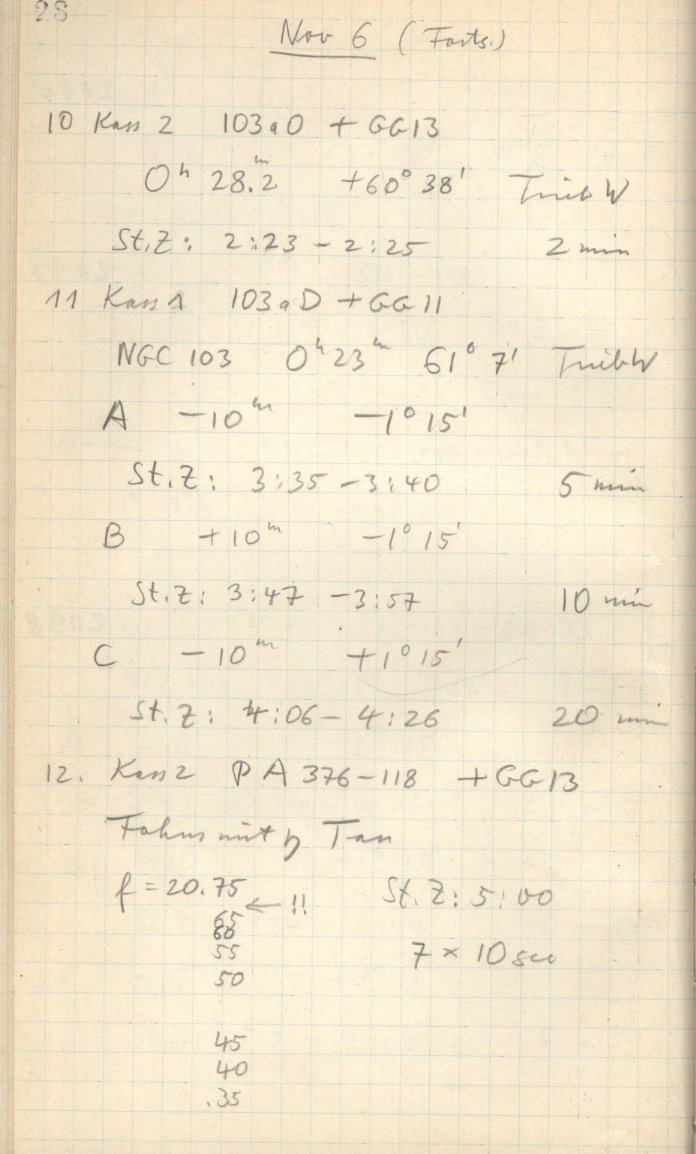 28
Nov 6 (Forts.)
10 Kass 2 103aO + GG13
0ʰ 28.ᵐ2 +60° 38' Trieb W
St.Z: 2:23 – 2:25 2 min
11 Kass 1 103aD + GG11
NGC 103 0ʰ23ᵐ 61° 7' Trieb W
A –10ᵐ –1° 15'
St.Z: 3:35 – 3:40 5 min
B +10ᵐ –1° 15'
St.Z: 3:47 – 3:57 10 min
C –10ᵐ +1° 15'
St.Z: 4:06 – 4:26 20 min
12. Kass 2 PA 376–118 + GG13
Tau
f = 20.75 ← !! St.Z: 5:00
65
60
55 7 × 10 sec
50
45
40
.35